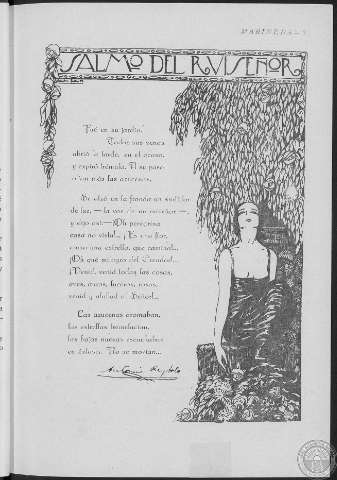 MARINEDA
SALMO DEL RUISEÑOR
Fué en su jardín.
Todas sus venas
abrió la tarde, en el ocaso,
y expiró trémula. A su paso
las azucenas.
Se alzó en la fronda un surtidor
de luz, — la voz de un ruiseñor —,
y cantó: — ¡Oh peregrina
cosa no vista!... ¡Es una flor,
como una estrella, que camina!...
¡Oh qué milagro del Creador!...
¡Venid, venid todas las cosas,
aves, auras, luceros, rosas,
venid y alabad al Señor!...
Las azucenas aromaban,
las estrellas
las hojas nuevas escuchaban
en éxtasis. No se movían...